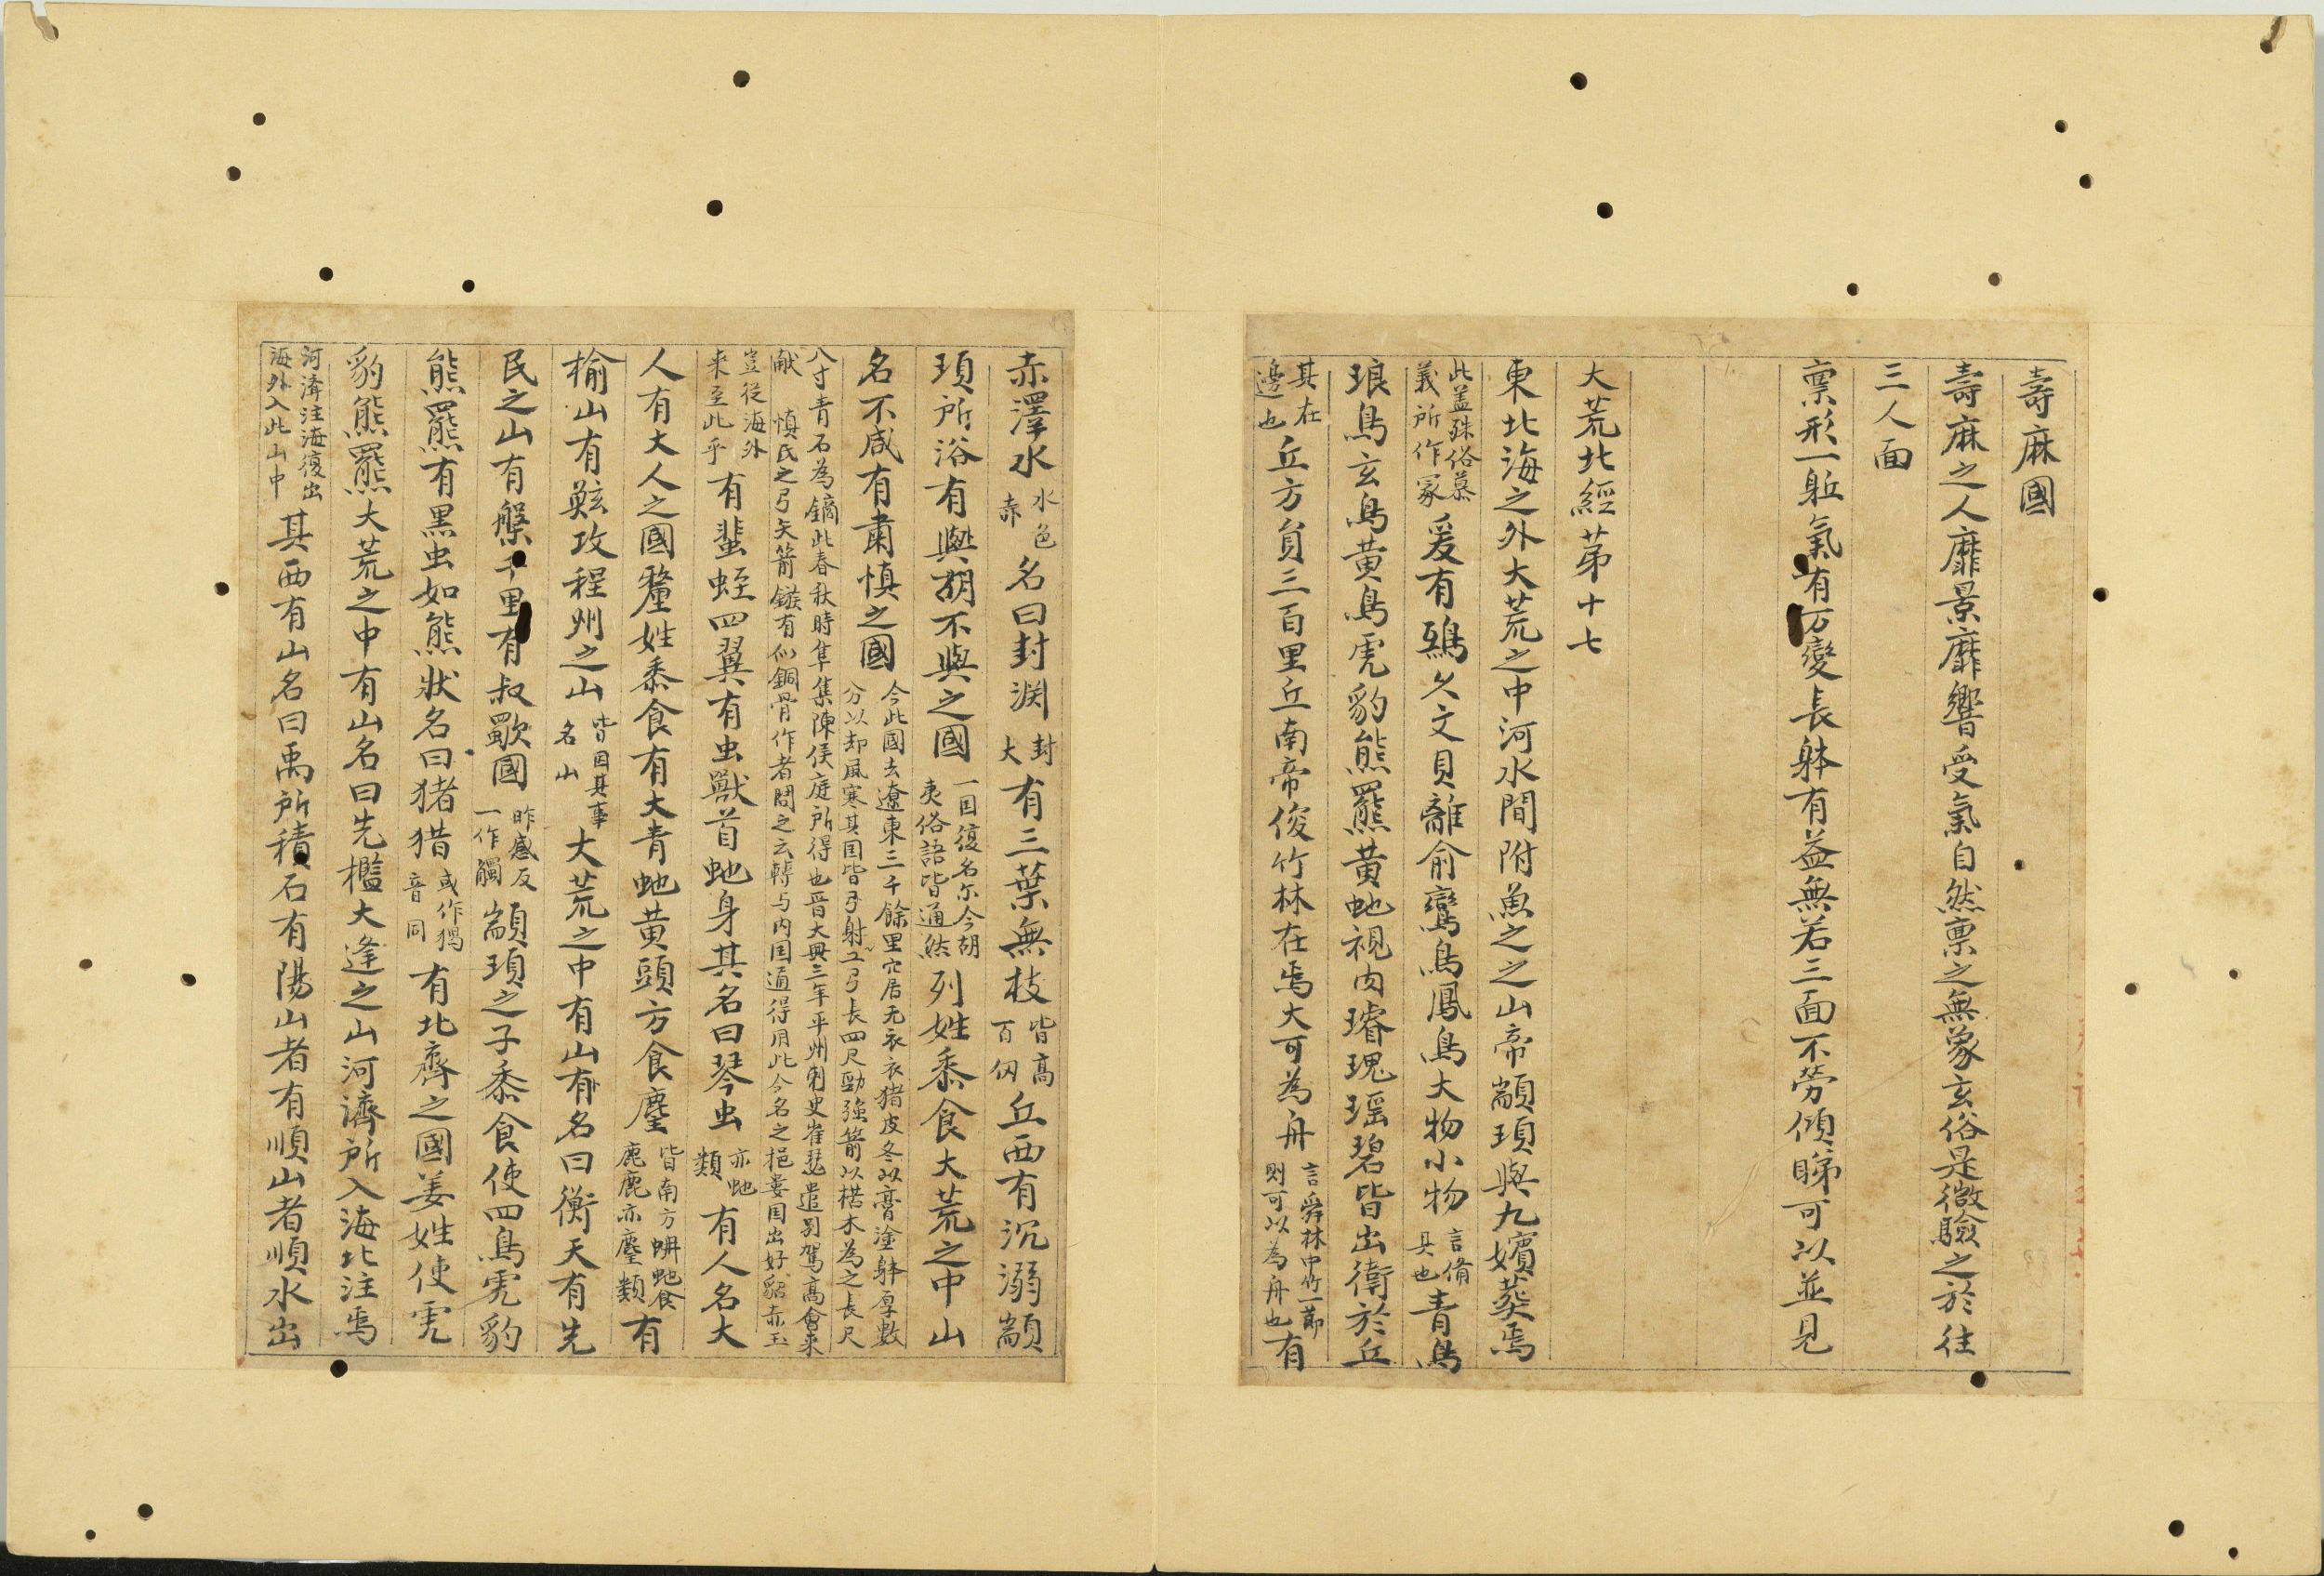 壽麻國
壽麻之人靡景靡響受氣自然稟之無象玄俗是微驗之於往
三人面
稟形一軀氣有万變長躰有益無若三面不勞傾睇可以並見
大荒北經苐十七
東北海之外大荒之中河水間附魚之之山帝顓頊與九嬪葬焉
此盖殊俗慕義所作冢爰有鴟久文貝離俞鸞鳥鳳鳥大物小物言俻具也青鳥
琅鳥玄鳥黃鳥虎豹熊羆黃虵視肉璿瑰瑶碧皆出衛於丘
其在邊也丘方員三百里丘南帝俊竹林在焉大可為舟言舜林中竹一節則可以為舟也有
赤澤水水色赤名曰封渊封大有三葉無枝皆高百仞丘西有沉溺顓
頊所浴有與胡不與之國一囯復名尔今胡夷俗語皆通然列姓黍食大荒之中山
名不咸有肅慎之國今此國去遼東三千餘里穴居无衣衣猪皮冬以膏塗躰厚數分以却風寒其囯皆弓射工弓長四尺勁強箭以楛木為之長尺
八寸青石為鏑此春秋時隼集陳侯庭所得也晉大興三年平州刺史崔毖遣别駕高會来献 慎氏之弓矢箭鏃有似銅骨作者問之云轉与内囯通得用此今名之挹婁囯出好貂赤玉
豈從海外来至此乎有蜚蛭四翼有虫獸首虵身其名曰琴虫亦虵類有人名大
人有大人之國釐姓黍食有大青虵黄頭方食麈皆南方蚦虵食鹿鹿亦麈類有
榆山有鯀攻程州之山皆因其事名山大荒之中有山有名曰衡天有先
民之山有槃千里有叔歜國昨感反一作觸顓頊之子黍食使四鳥虎豹
熊羆有黑虫如熊狀名曰猪猎或作獡音同有北齊之國姜姓使虎
豹熊羆大荒之中有山名曰先檻大逢之山河濟所入海北注焉
河濟注海復出海外入此山中其西有山名曰禹所積石有陽山者有順山者順水出